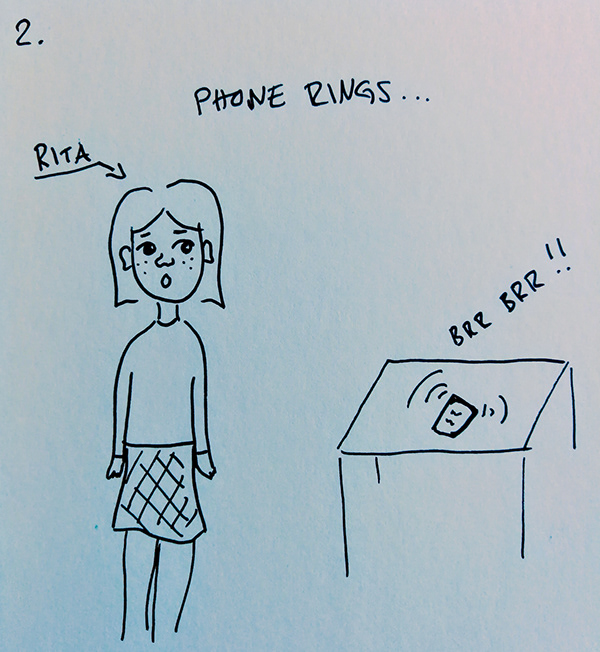 2.
PHONE RINGS...
RITA
BRR BRR!!